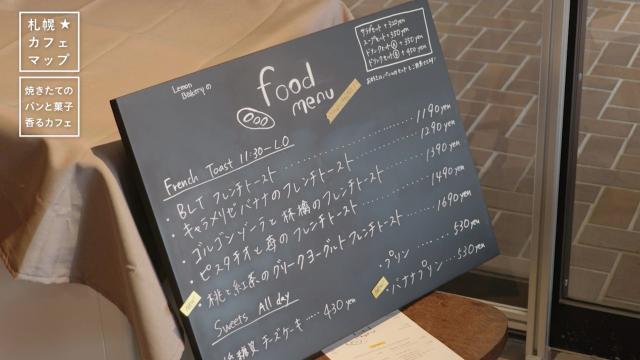 札幌★
カフェ
マップ
焼きたての
パンと菓子
香るカフェ
Lemon
Bakeryの
food
menu
サラダセット +320yen
スープセット +350yen
ドリンクセットⒶ +350yen
ドリンクセットⒷ +450yen
French Toast 11:30-LO
・BLT フレンチトースト 1190yen
・キャラメリゼバナナのフレンチトースト 1290yen
・ゴルゴンゾーラと林檎のフレンチトースト 1390yen
・ピスタチオと苺のフレンチトースト 1490yen
・桃と紅茶のグリークヨーグルトフレンチトースト 1690yen
Sweets All day
低糖質 チーズケーキ..... 430yen
・プリン ........ 530yen
・バナナプリン .... 530yen